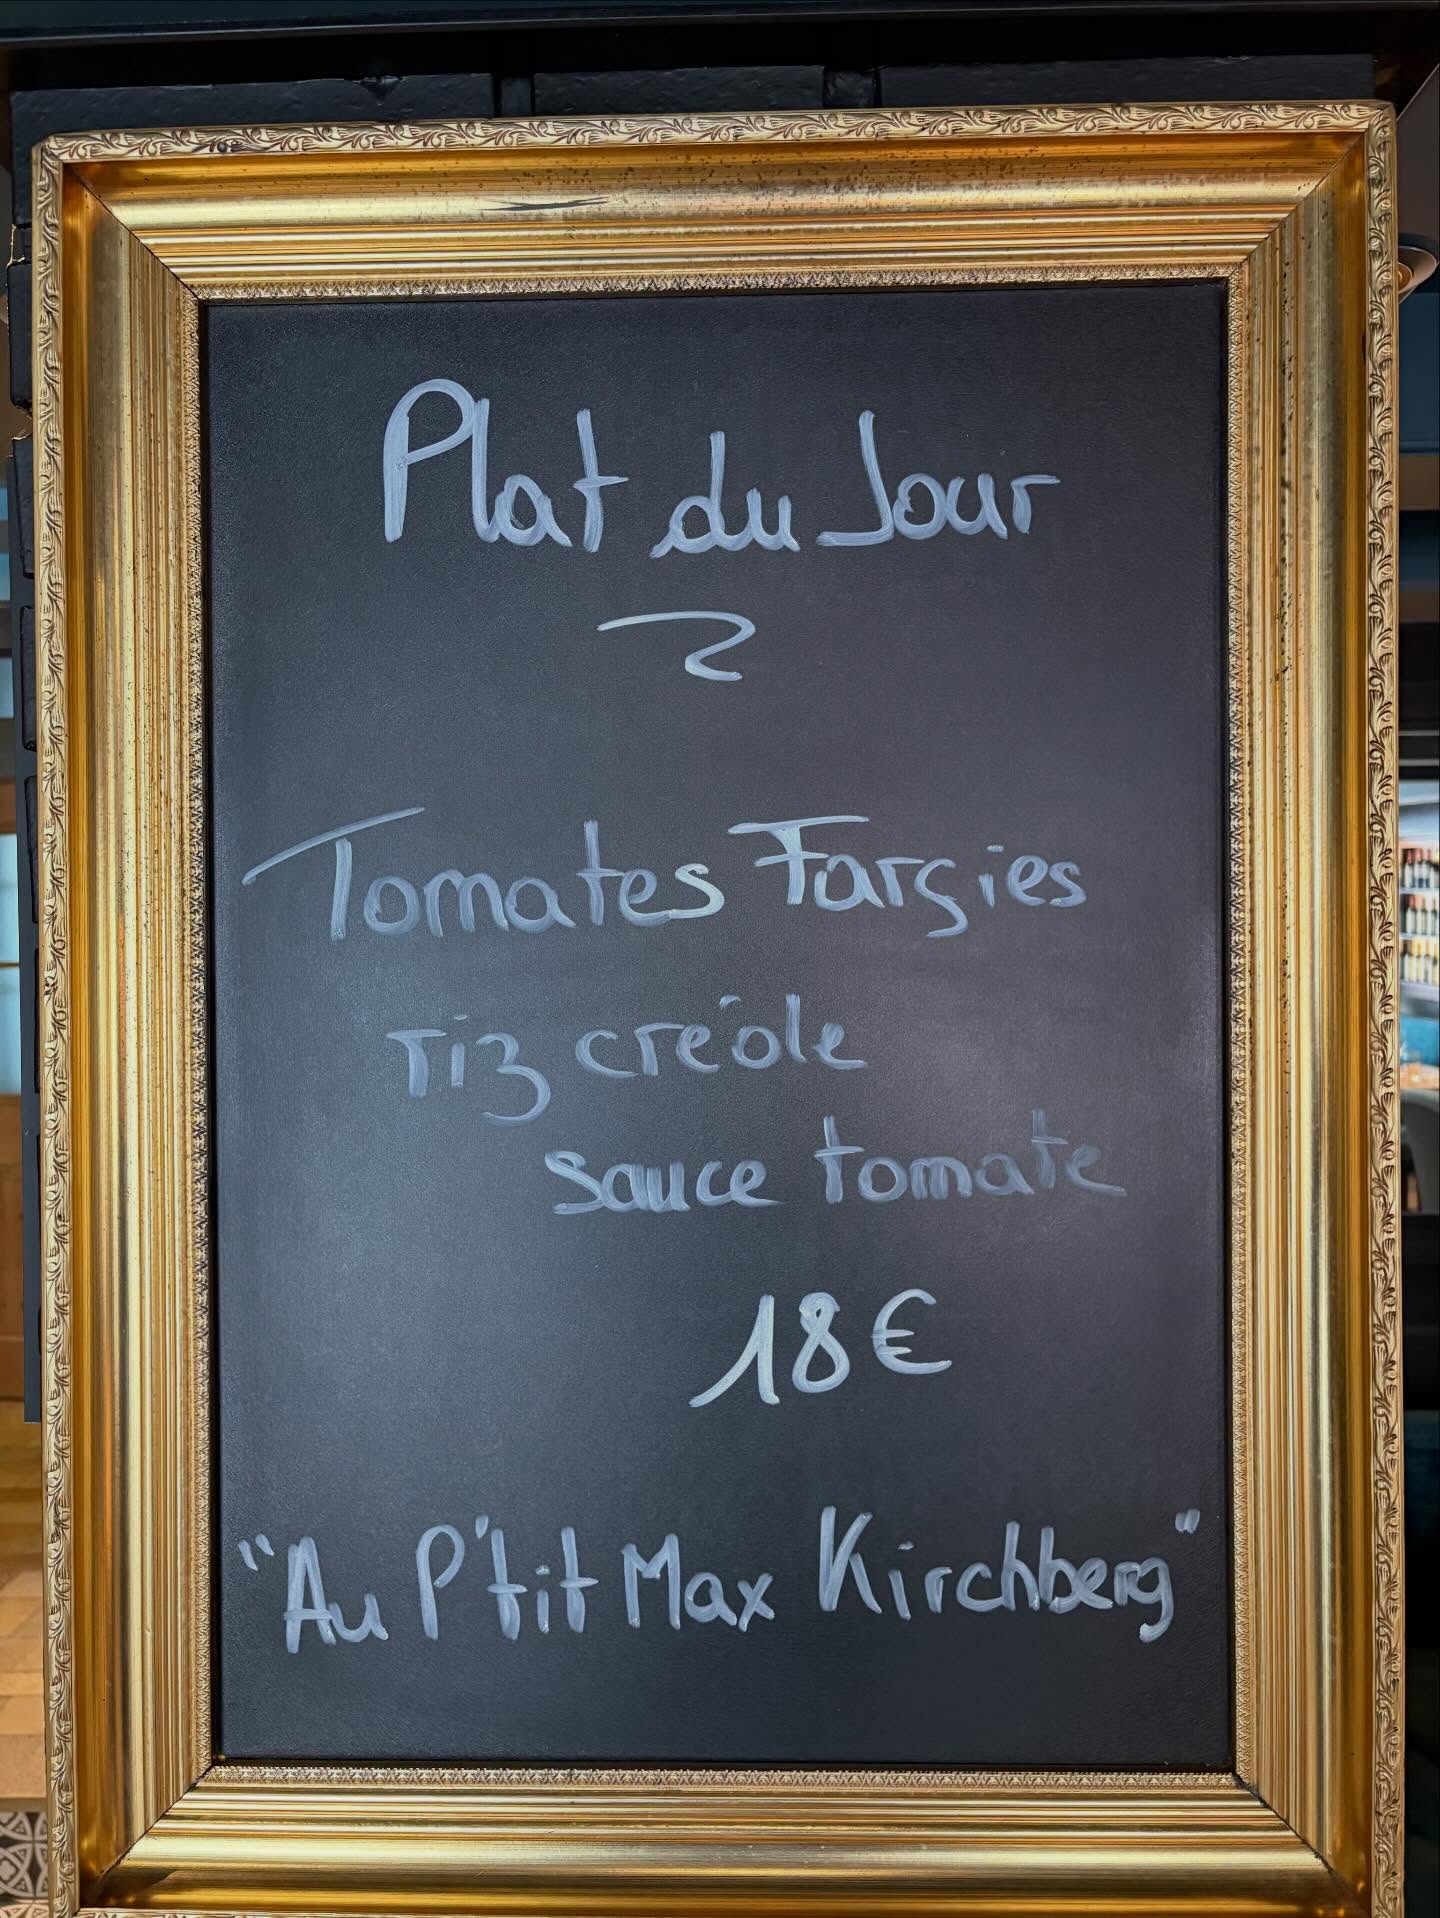 Plat du Jour
Tomates Farcies
riz créole
sauce tomate
18€
"Au P'tit Max Kirchberg"